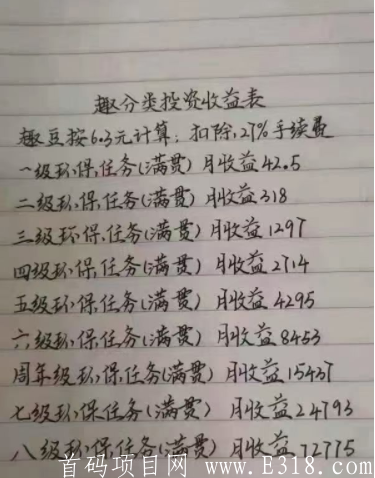 趣分类投资收益表
趣豆按6.3元计算; 扣除27%手续费
一级环保任务(满贯) 月收益42.5
二级环保任务(满贯) 月收益318
三级环保任务(满贯) 月收益1297
四级环保任务(满贯) 月收益2714
五级环保任务(满贯) 月收益4295
六级环保任务(满贯) 月收益8453
周年级环保任务(满贯) 月收益15437
七级环保任务(满贯) 月收益24793
八级环保任务(满贯) 月收益72775
首码项目网 www.E318.com